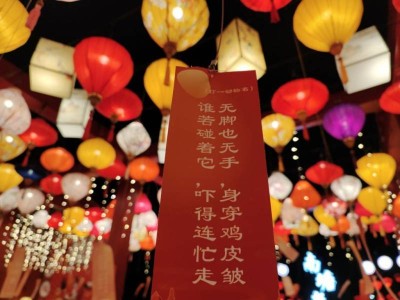 打一动物名）
无脚也无手，身穿鸡皮皱
谁若碰着它，吓得连忙走